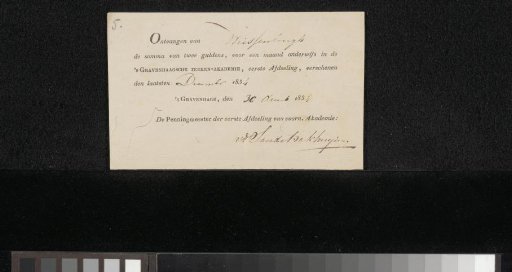 5.
Ontvangen van Weissenbruch
de somma van twee guldens, voor een maand onderwijs in de
'S GRAVENHAAGSCHE TEEKEN-AKADEMIE, eerste Afdeeling, verschenen
den laatsten December 183
'S GRAVENHAGE, den 30 Decemb 183
De Penningmeester der eerste Afdeeling van voorn. Akademie:
Sande Bakhuyzen